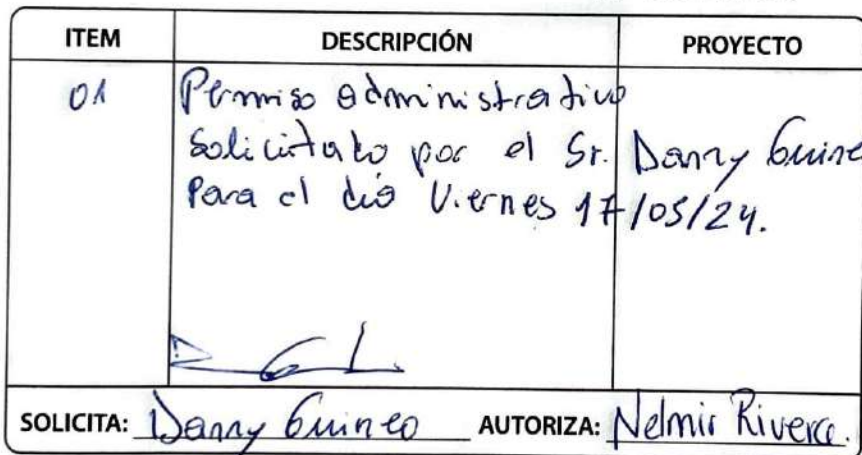 ITEM DESCRIPCIÓN PROYECTO
01 Permiso administrativo
Solicitato por el Sr. Danny Guineo
Para el dia Viernes 17/05/24.
SOLICITA: Danny Guineo AUTORIZA: Nelmir Rivera.